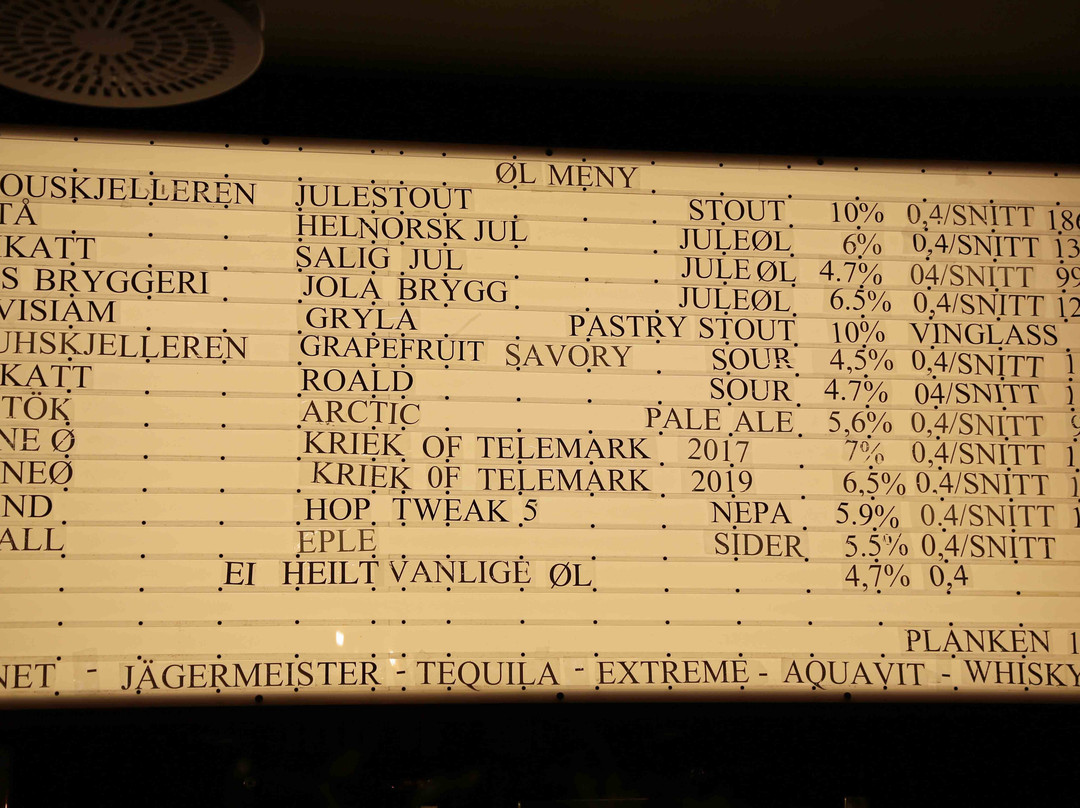 ØL MENY
OUSKJELLEREN JULESTOUT STOUT 10% 0,4/SNITT 180
TÅ HELNORSK JUL JULEØL 6% 0,4/SNITT 13
KATT SALIG JUL JULEØL 4.7% 04/SNITT 99
S BRYGGERI JOLA BRYGG JULEØL 6.5% 0,4/SNITT 12
VISIAM GRYLA PASTRY STOUT 10% VINGLASS
UHSKJELLEREN GRAPEFRUIT SAVORY SOUR 4,5% 0,4/SNITT 1
KATT ROALD SOUR 4.7% 04/SNITT 1
TÖK ARCTIC PALE ALE 5,6% 0,4/SNITT 9
NE Ø KRIEK OF TELEMARK 2017 7% 0,4/SNITT 1
NEØ KRIEK 0F TELEMARK 2019 6,5% 0.4/SNITT 1
ND HOP TWEAK 5 NEPA 5.9% 0.4/SNITT 1
ALL EPLE SIDER 5.5% 0,4/SNITT
EI HEILT VANLIGE ØL 4,7% 0,4
PLANKEN 1
NET - JÄGERMEISTER - TEQUILA - EXTREME - AQUAVIT - WHISKY